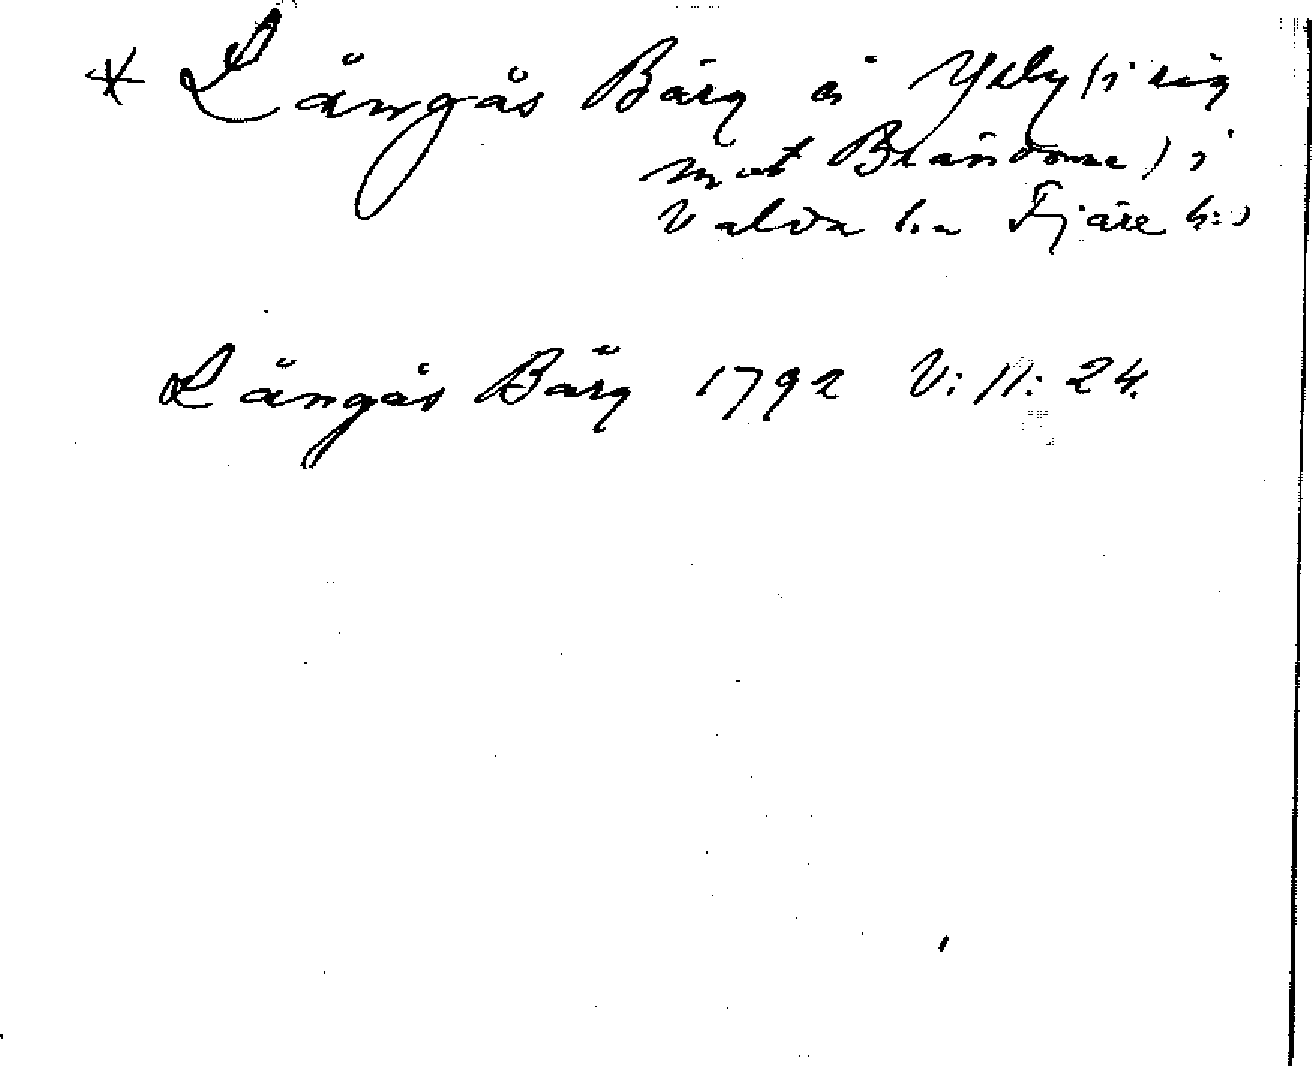 * Långås Bärg å Yeby (i rög
mot Brändome) i
Valda s:n Fjäre h:d
Långås Bärg 1792 V: 11: 24.